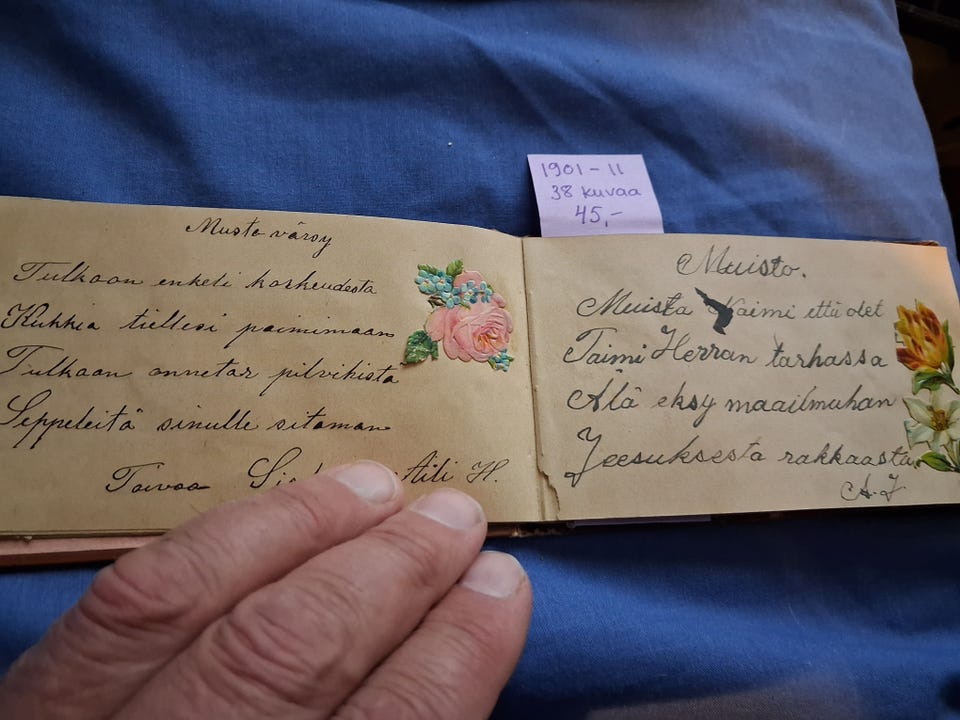 1901 - 11
38 kuvaa
45,-
Musto värsy
Tulkaan enkeli korkeudesta
Kukkia tiellesi poimimaan
Tulkaan onnetar pilvikista
Seppeleitä sinulle sitoman
Toivoo Aili H.
Muisto.
Muista että olet
Taimi Herran tarhassa
Älä eksy maailmahan
Jeesuksesta rakkaasta.
A.J